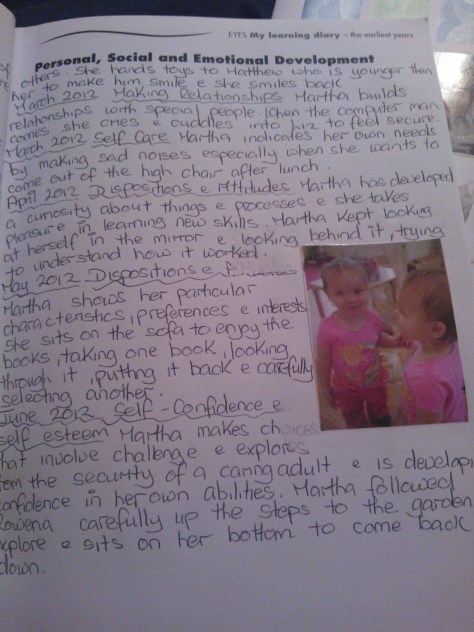 EYFS My learning diary – the earliest years
Personal, Social and Emotional Development
others. She hands toys to Matthew who is younger then
her to make him smile e she smiles back
March 2012 Making Relationships Martha builds
relationships with special people. When the computer man
comes she cries e cuddles into Liz to feel secure.
March 2012 Self Care Martha indicates her own needs
by making sad noises especially when she wants to
come out of the high chair after lunch.
April 2012 Dispositions e Attitudes Martha has developed
a curiosity about things e processes e she takes
pleasure in learning new skills. Martha kept looking
at herself in the mirror e looking behind it, trying
to understand how it worked.
May 2012 - Dispositions e
Martha shows her particular
characteristics, preferences e interests
she sits on the sofa to enjoy the
books, taking one book, looking
through it, putting it back e carefully
selecting another.
June 2012 Self-Confidence e
self esteem Martha makes choices
that involve challenge e explores
from the security of a caring adult e is developi
confidence in her own abilities. Martha followed
Rowena carefully up the steps to the garden
explore e sits on her bottom to come back
down.